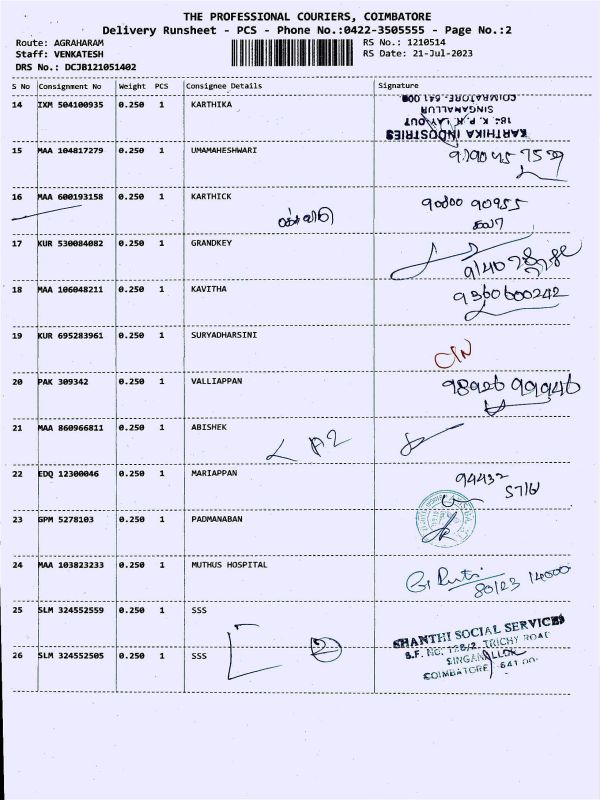 THE PROFESSIONAL COURIERS, COIMBATORE
Delivery Runsheet - PCS - Phone No.:0422-3505555 - Page No.:2
Route: AGRAHARAM
RS No.: 1210514
Staff: VENKATESH
RS Date: 21-Jul-2023
DRS No.: DCJB121051402
S No Consignment No Weight PCS Consignee Details Signature
14 IXM 504100935 0.250 1 KARTHIKA
KARTHIKA INDUSTRIES
SINGANALLUR
COIMBATORE - 641 005.
15 MAA 104817279 0.250 1 UMAMAHESHWARI
16 MAA 600193158 0.250 1 KARTHICK
90800 90955
17 KUR 530084082 0.250 1 GRANDKEY
18 MAA 106048211 0.250 1 KAVITHA 9360600242
19 KUR 695283961 0.250 1 SURYADHARSINI
20 PAK 309342 0.250 1 VALLIAPPAN 98926 99946
21 MAA 860966811 0.250 1 ABISHEK
22 EDQ 12300046 0.250 1 MARIAPPAN 94432
23 GPM 5278103 0.250 1 PADMANABAN
24 MAA 103823233 0.250 1 MUTHUS HOSPITAL
80123 14000
25 SLM 324552559 0.250 1 SSS
SHANTHI SOCIAL SERVICES
S.F. NO: 128/2, TRICHY ROAD
26 SLM 324552505 0.250 1 SSS
SINGANALLUR
COIMBATORE - 641 005